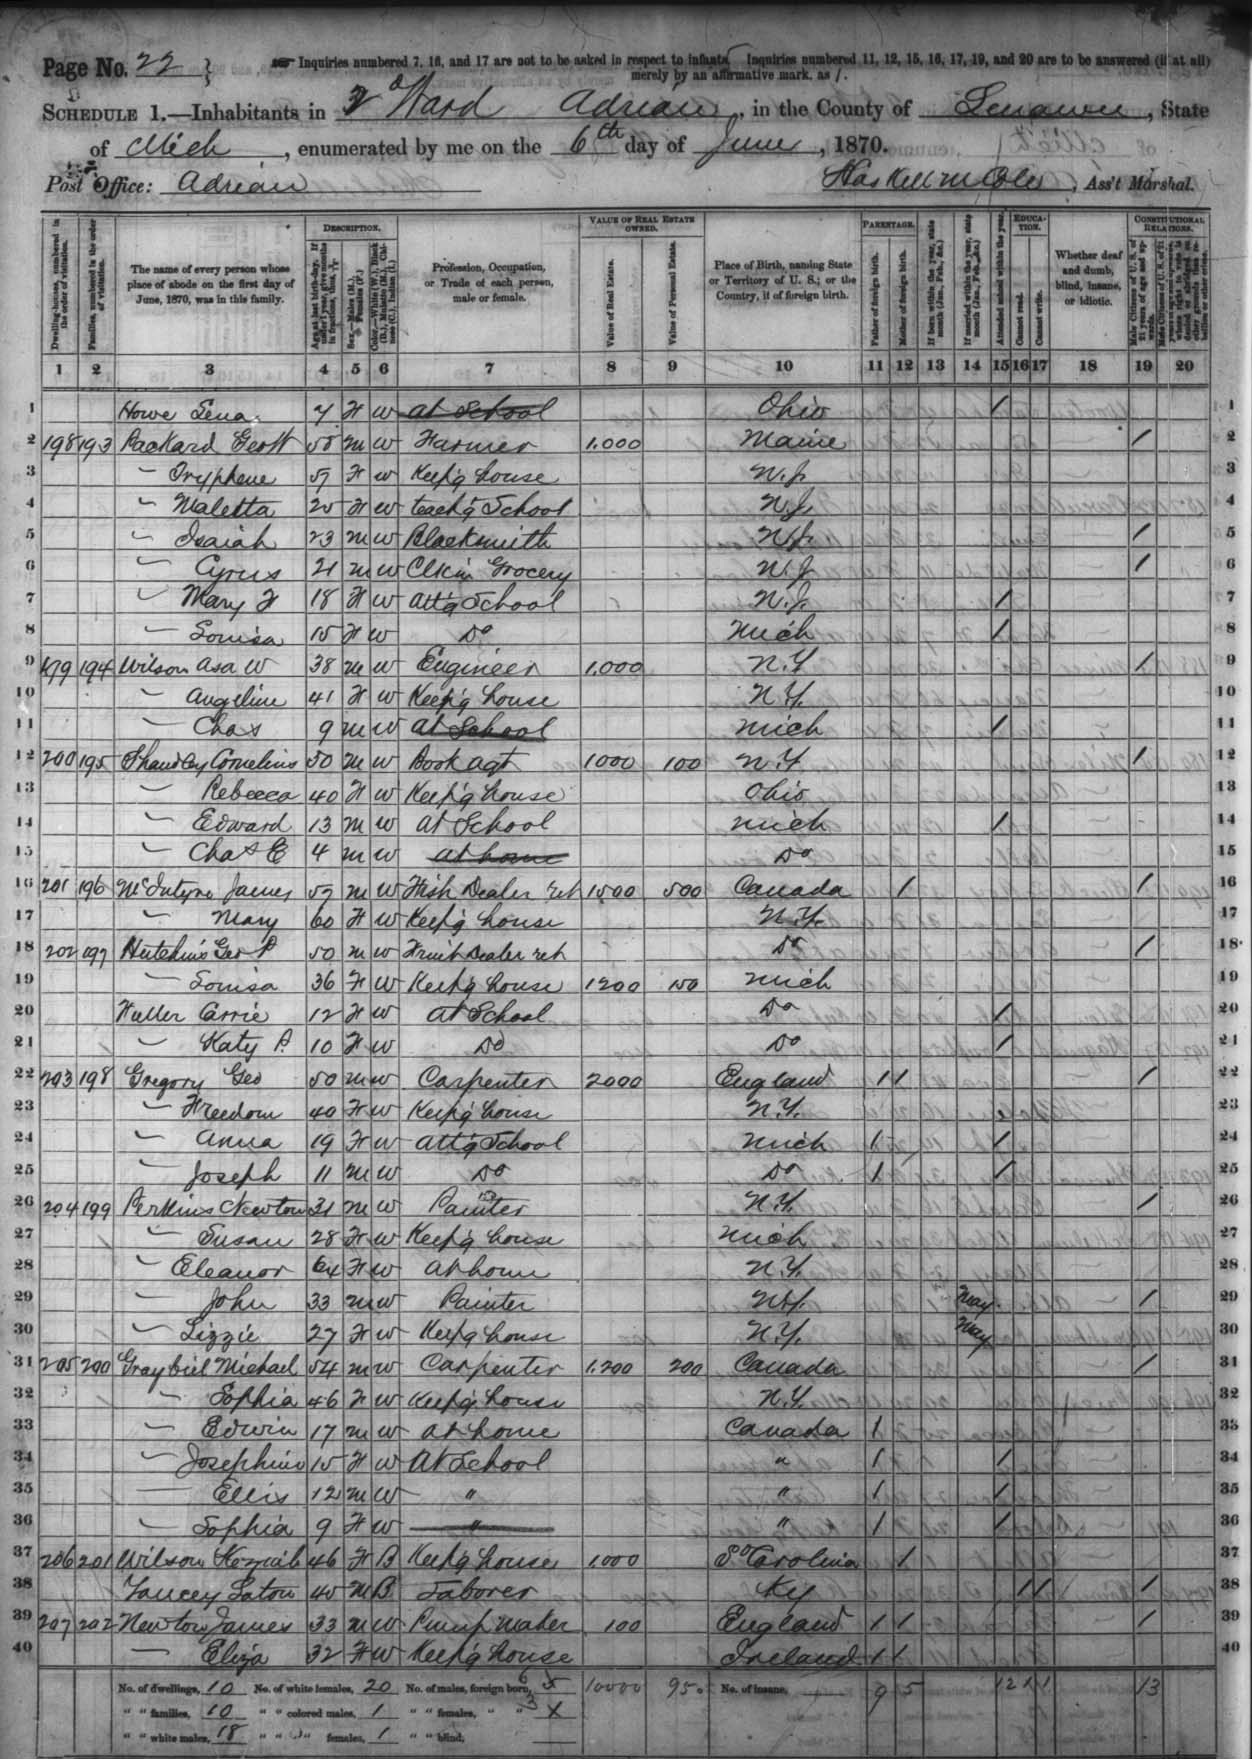 Page No. 22 } Inquiries numbered 7, 16, and 17 are not to be asked in respect to infants. Inquiries numbered 11, 12, 15, 16, 17, 19, and 20 are to be answered (if at all)
merely by an affirmative mark, as /.
SCHEDULE 1.—Inhabitants in 2d Ward Adrian, in the County of Lenawee, State
of Mich, enumerated by me on the 6th day of June, 1870.
Post Office: Adrian Haskell M Cole, Ass't Marshal.
DESCRIPTION. VALUE OF REAL ESTATE OWNED. PARENTAGE. EDUCATION. CONSTITUTIONAL RELATIONS.
Dwelling-houses, numbered in the order of visitation.
Families, numbered in the order of visitation.
The name of every person whose place of abode on the first day of June, 1870, was in this family.
Profession, Occupation, or Trade of each person, male or female.
Value of Real Estate.
Value of Personal Estate.
Place of Birth, naming State or Territory of U. S.; or the Country, if of foreign birth.
Father of foreign birth.
Mother of foreign birth.
If born within the year, state month (Jan., Feb., &c.)
If married within the year, state month (Jan., Feb., &c.)
Attended school within the year.
Cannot read.
Cannot write.
Whether deaf and dumb, blind, insane, or idiotic.
1 2 3 4 5 6 7 8 9 10 11 12 13 14 15 16 17 18 19 20
1 Howe Lena 7 F W at School Ohio / 1
2 198 193 Packard Geo W 58 M W Farmer 1,000 Maine / 2
3 — Tryphene 57 F W Keep'g house N.J. 3
4 — Maletta 25 F W teach'g School N.J. 4
5 — Isaiah 23 M W Blacksmith N.J. / 5
6 — Cyrus 21 M W Clk in Grocery N.J. / 6
7 — Mary F 18 F W Att'g School N.J. / 7
8 — Louisa 15 F W Do Mich / 8
9 199 194 Wilson Asa W 38 M W Engineer 1,000 N.Y / 9
10 — Angeline 41 F W Keep'g house N.Y. 10
11 — Chas 9 M W at School Mich / 11
12 200 195 Cornelius 50 M W Book agt 1000 100 N.Y / 12
13 — Rebecca 40 F W Keep'g house Ohio 13
14 — Edward 13 M W at School Mich / 14
15 — Chas E 4 M W at home Do 15
16 201 196 McIntyre James 57 M W Fish Dealer ret 1500 500 Canada / / 16
17 — Mary 60 F W Keep'g house N.Y. 17
18 202 197 Hutchins Geo P 50 M W Fruit Dealer ret Do / 18
19 — Louisa 36 F W Keep'g house 1200 150 Mich 19
20 Fuller Carrie 12 F W at School Do / 20
21 — Katy P. 10 F W Do Do / 21
22 203 198 Gregory Geo 50 M W Carpenter 2000 England / / / 22
23 — Freedom 40 F W Keep'g house N.Y. 23
24 — Anna 19 F W att'g School Mich / / 24
25 — Joseph 11 M W Do Do / / 25
26 204 199 Perkins Newton 31 M W Painter N.Y. / 26
27 — Susan 28 F W Keep'g house Mich 27
28 — Eleanor 64 F W at home N.Y. 28
29 — John 33 M W Painter N.Y. May / 29
30 — Lizzie 27 F W Keep'g house N.Y. May 30
31 205 200 Graybiel Michael 54 M W Carpenter 1,200 200 Canada / 31
32 — Sophia 46 F W Keep'g house N.Y. 32
33 — Edwin 17 M W at home Canada / 33
34 — Josephine 15 F W At School " / / 34
35 — Ellis 12 M W " " / / 35
36 — Sophia 9 F W " " / / 36
37 206 201 Wilson Keziah 46 F B Keep'g house 1,000 So Carolina / 37
38 Yancey 40 M B Laborer Ky / / / 38
39 207 202 Newton James 33 M W Pump maker 100 England / / / 39
40 — Eliza 32 F W Keep'g house Ireland / / 40
No. of dwellings, 10 No. of white females, 20 No. of males, foreign born, 6 5 10000 950 No. of insane, 9 5 12 1 1 13
" " families, 10 " " colored males, 1 " " females, " " 3
" " white males, 18 " " " females, 1 " " blind,